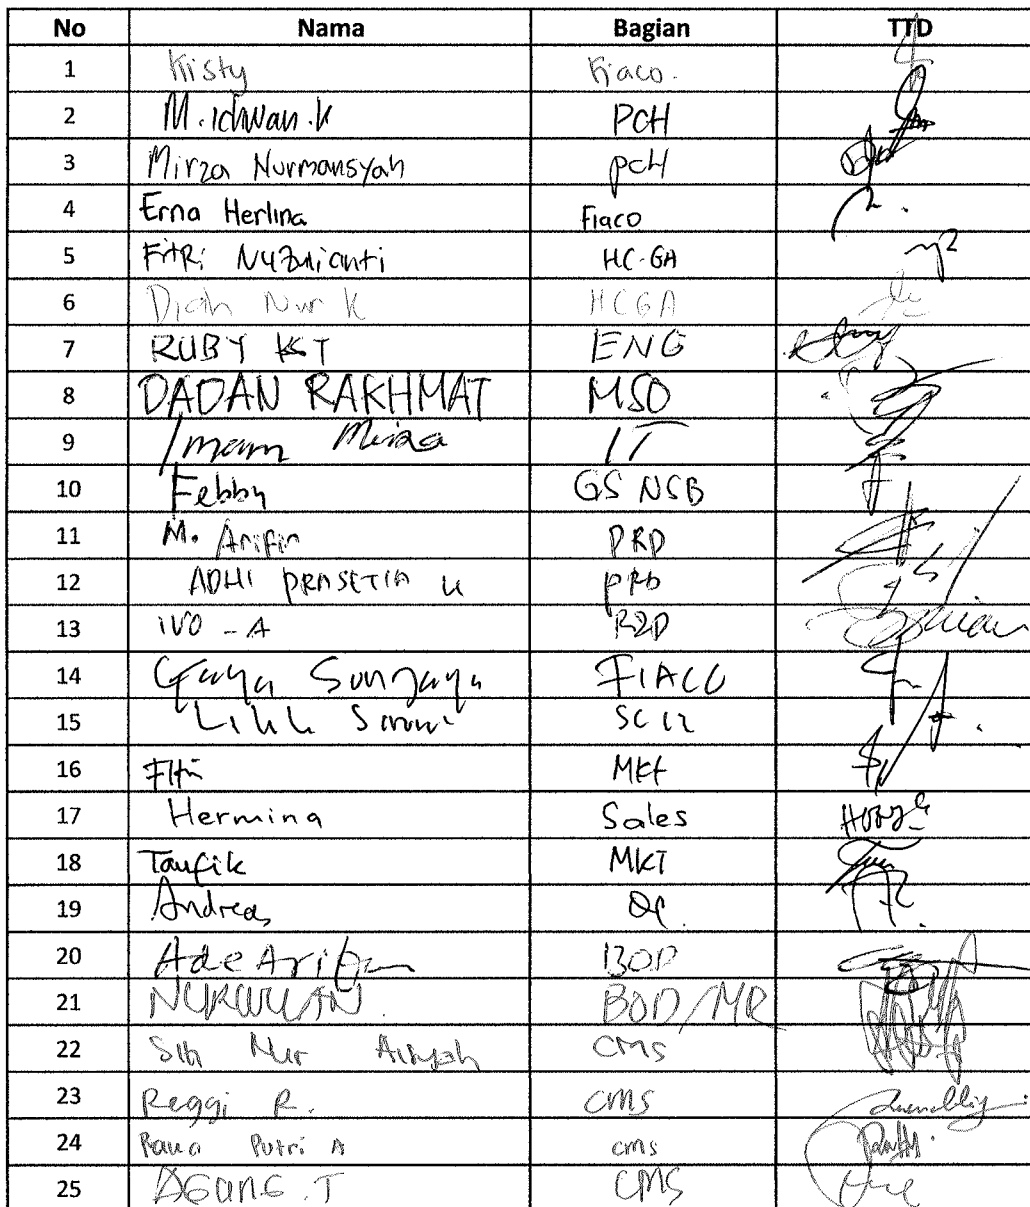 No Nama Bagian TTD
1 Kisty Fiaco.
2 M. Ichwan. K PCH
3 Mirza Nurmansyah PCH
4 Erna Herlina Fiaco
5 Fitri Nuzulianti HC-GA
6 Diah Nur K HCGA
7 RUBY KST ENG
8 DADAN RAKHMAT MSO
9 Imam Mirza IT
10 Febby GS NSB
11 M. Arifin PRD
12 ADHI PRASETIA PRD
13 IVO - A R&D
14 Sunjaya FIACO
15
16 Fitri MKT
17 Hermina Sales
18 Taufik MKT
19 Andreas QC
20 Ade Arifin BOD
21 NURWULAN BOD/MR
22 Siti Nur Aisyah CMS
23 Reggi R. CMS
24 Putri A CMS
25 AGUNG . T CMS